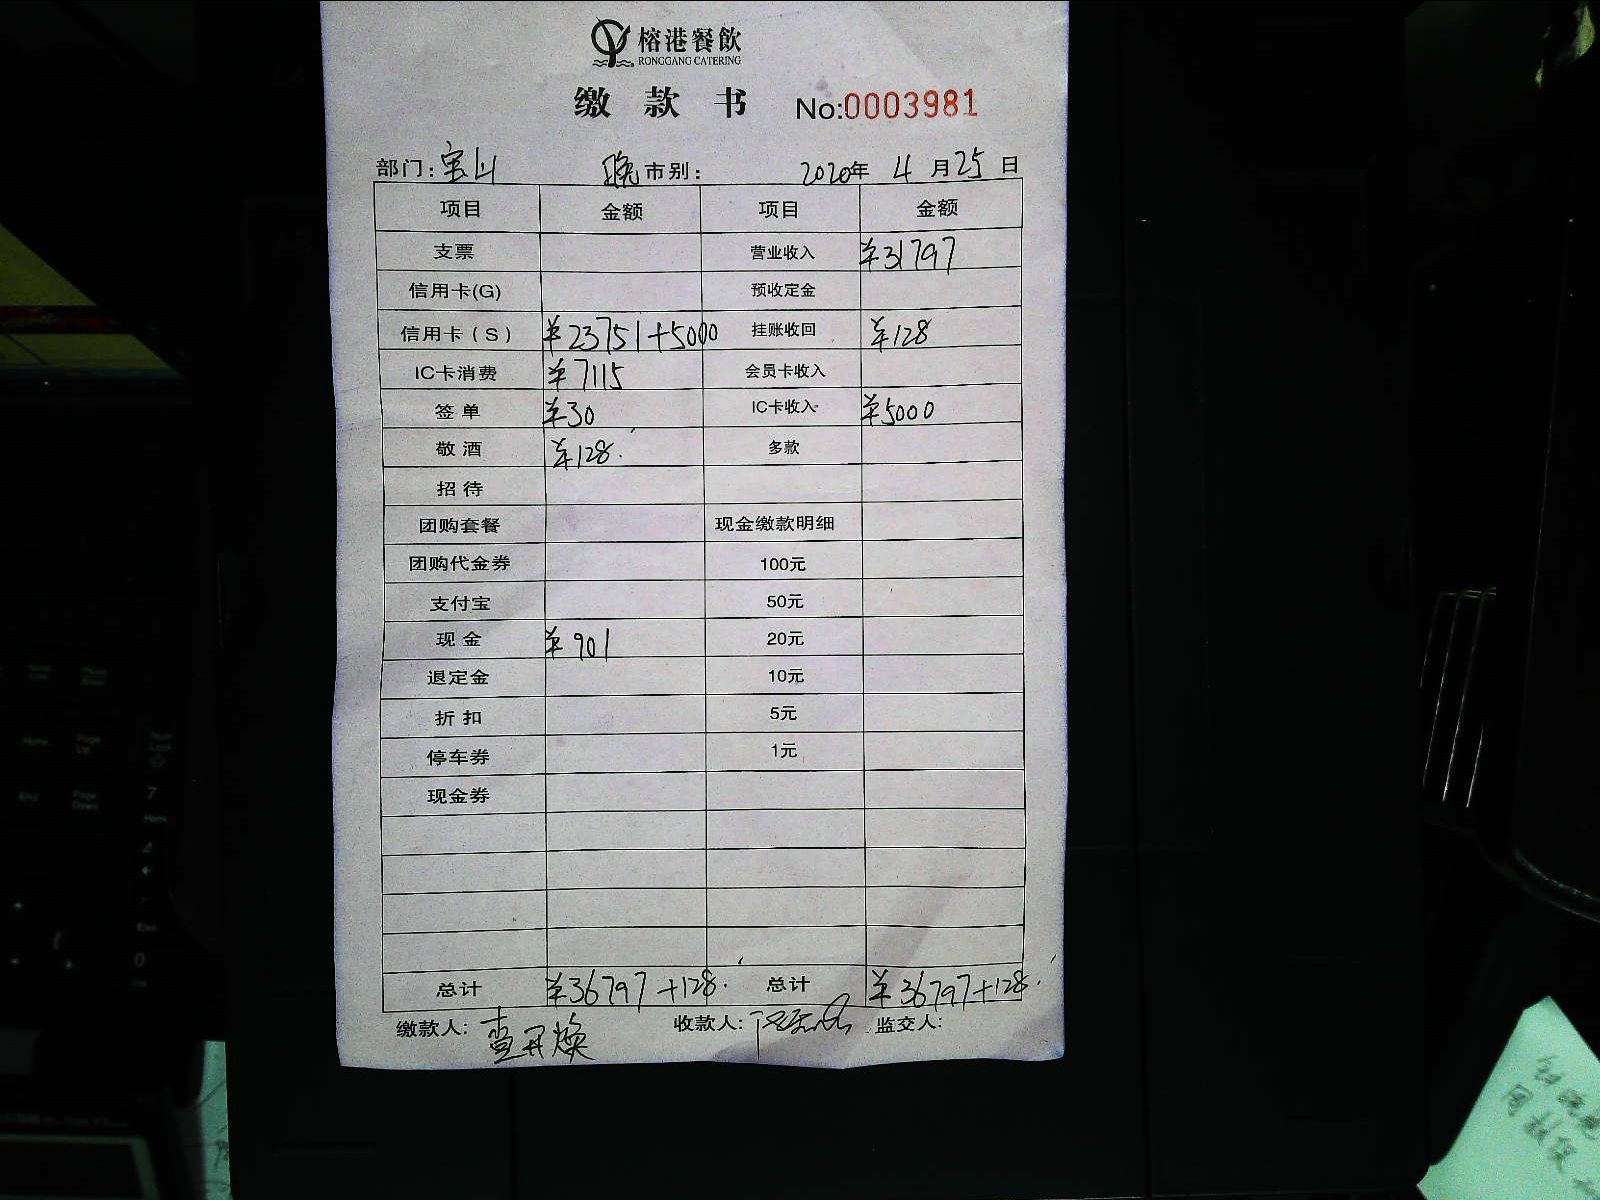 榕港餐飲
RONGGANG CATERING
缴款书 No:0003981
部门:宝山 晚市别: 2020年4月25日
项目 金额 项目 金额
支票 营业收入 ¥31797
信用卡(G) 预收定金
信用卡(S) ¥23751+5000 挂账收回 ¥128
IC卡消费 ¥7115 会员卡收入
签单 ¥30 IC卡收入 ¥5000
敬酒 ¥128. 多款
招待
团购套餐 现金缴款明细
团购代金券 100元
支付宝 50元
现金 ¥901 20元
退定金 10元
折扣 5元
停车券 1元
现金券
总计 ¥36797+128. 总计 ¥36797+128.
缴款人: 收款人: 监交人: